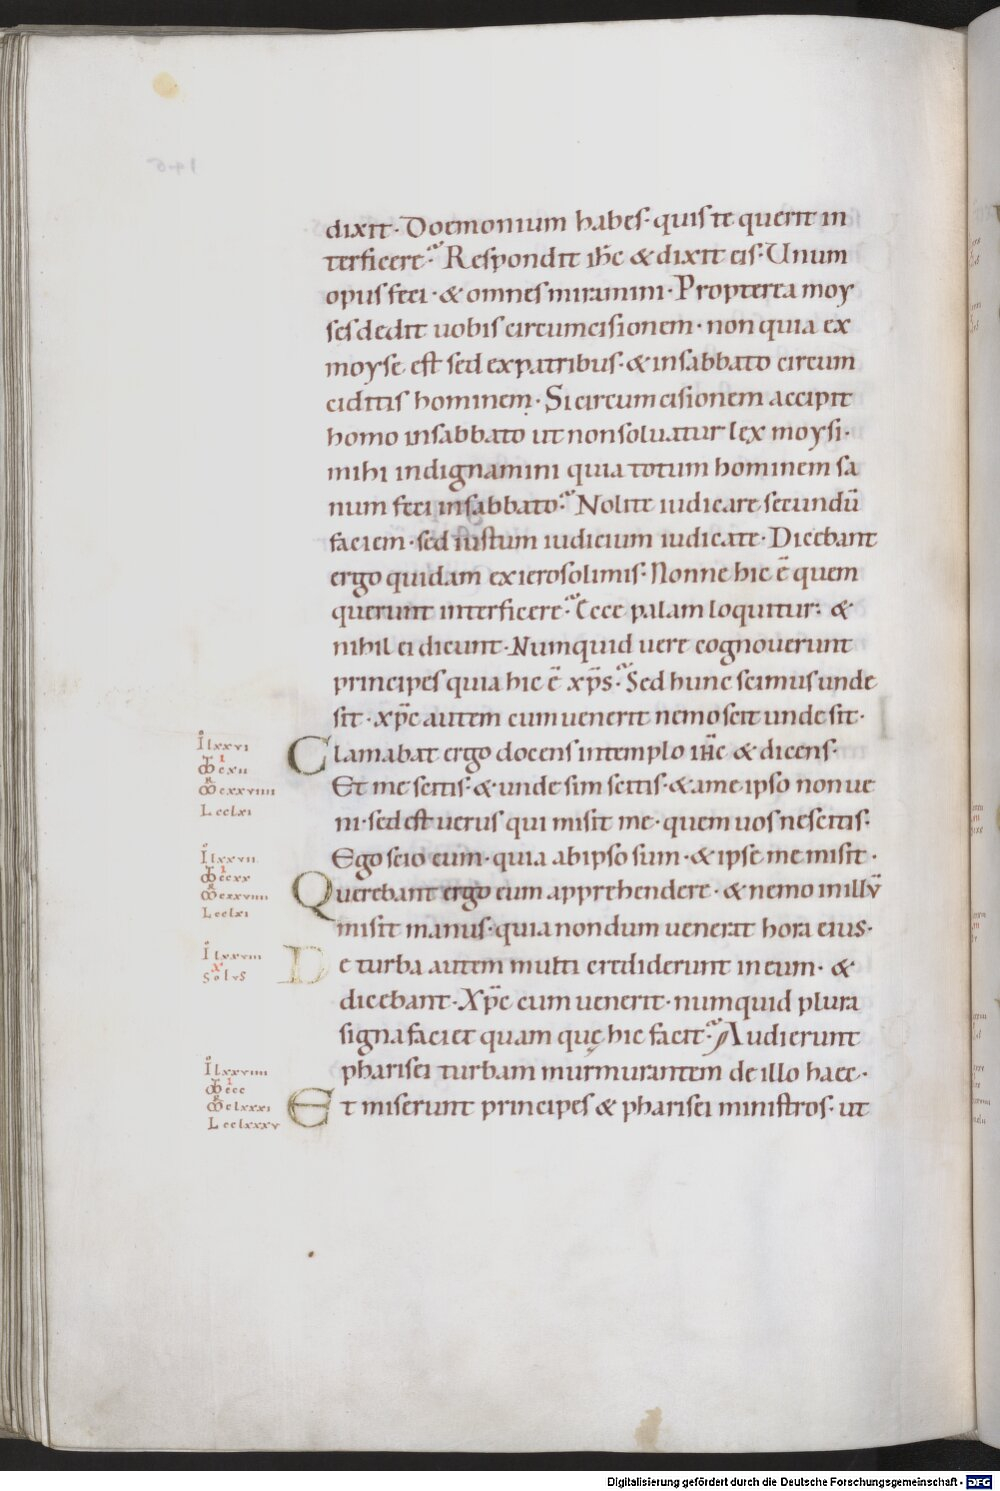 dixit · Doemonium habes · quis te querit in
terficere · Respondit ihc̄ & dixit eis · Unum
opus feci · & omnes miramini · Propterea moy
ses dedit uobis circumcisionem · non quia ex
moyse est sed ex patribus · & in sabbato circum
ciditis hominem · Si circumcisionem accipit
homo in sabbato ut non soluatur lex moysi ·
mihi indignamini quia totum hominem sa
num feci in sabbato · Nolite iudicare secundū
faciem · sed iustum iudicium iudicate · Dicebant
ergo quidam ex ierosolimis · Nonne hic ē quem
querunt interficere · Ecce palam loquitur : &
nihil ei dicunt · Numquid uere cognouerunt
principes quia hic ē xp̄s · Sed hunc scimus unde
sit · xp̄c autem cum uenerit nemo scit unde sit ·
Clamabat ergo docens in templo ihc̄ & dicens ·
Et me scitis · & unde sim scitis · & a me ipso non ue
ni · sed est uerus qui misit me · quem uos nescitis ·
Ego scio eum · quia ab ipso sum · & ipse me misit ·
Querebant ergo eum apprehendere · & nemo in illū
misit manus · quia nondum uenerat hora eius ·
De turba autem multi crediderunt in eum · &
dicebant · Xp̄c cum uenerit · numquid plura
signa faciet quam quę hic facit · Audierunt
pharisei turbam murmurantem de illo haec ·
Et miserunt principes & pharisei ministros · ut
I lxxvi
cxii
cxxviiii
L cclxi
I lxxvii
ccxx
cxxviiii
L cclxi
I lxxviii
Solus
I lxxviiii
ccc
clxxxi
L cclxxxv
Digitalisierung gefördert durch die Deutsche Forschungsgemeinschaft - DFG